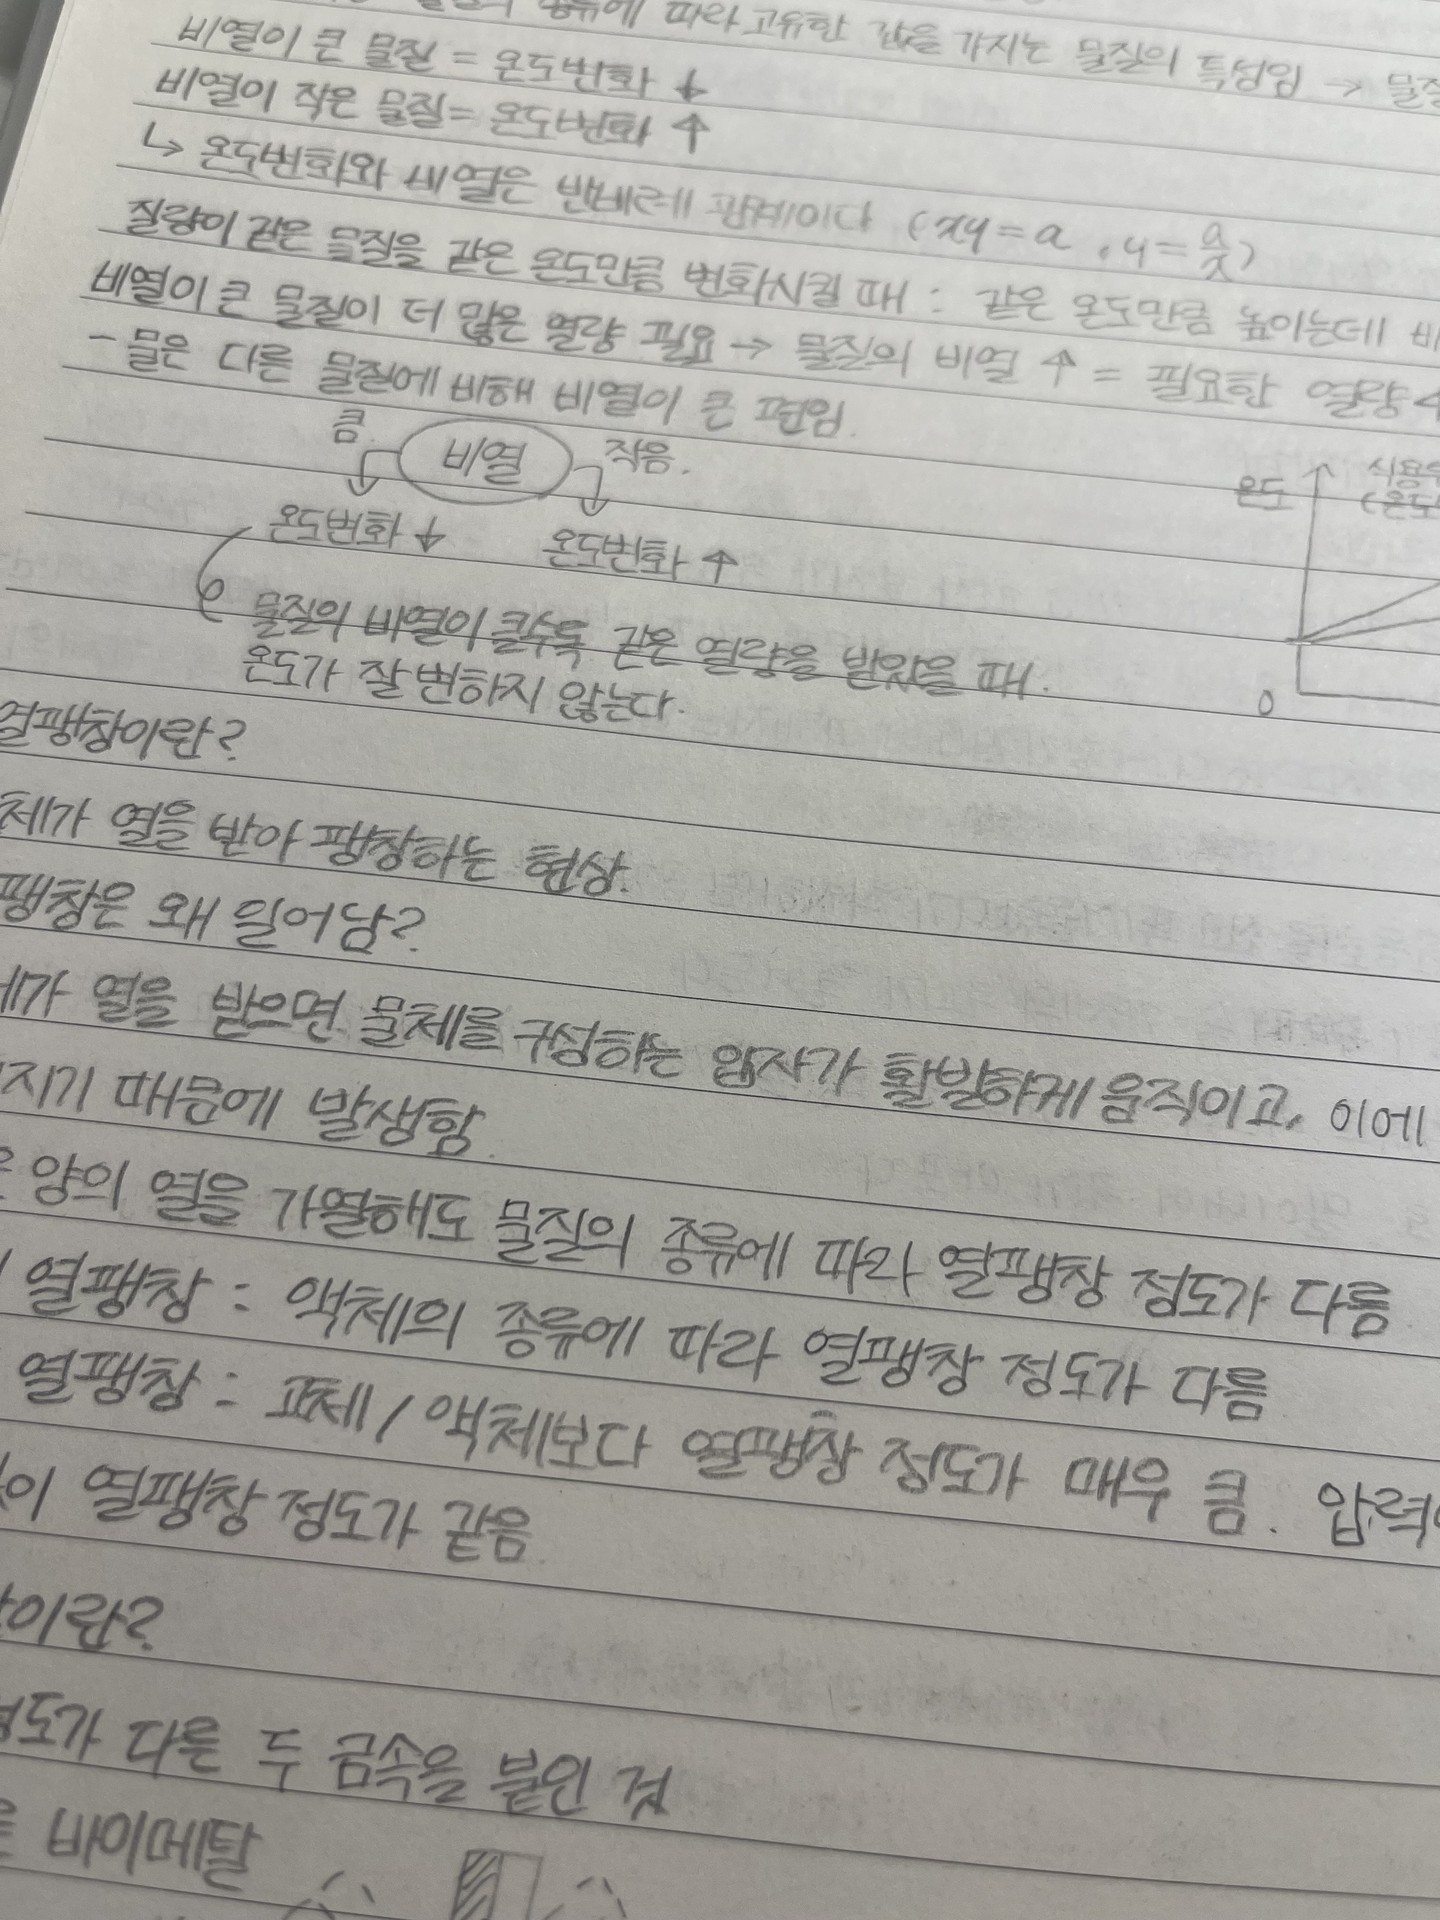 종류에 따라 고유한 값을 가지는 물질의 특성임 → 물질
비열이 큰 물질 = 온도변화 ↓
비열이 작은 물질 = 온도변화 ↑
↳ 온도변화와 비열은 반비례 관계이다 (xy = a , y = a/x)
질량이 같은 물질을 같은 온도만큼 변화시킬 때 : 같은 온도만큼 높이는데 비
비열이 큰 물질이 더 많은 열량 필요 → 물질의 비열 ↑ = 필요한 열량 ↑
- 물은 다른 물질에 비해 비열이 큰 편임.
큼. 비열 작음.
온도변화 ↓ 온도변화 ↑
물질의 비열이 클수록 같은 열량을 받았을 때.
온도가 잘 변하지 않는다.
온도
식용유
(온도
0
열팽창이란?
체가 열을 받아 팽창하는 현상.
팽창은 왜 일어남?
체가 열을 받으면 물체를 구성하는 입자가 활발하게 움직이고, 이에
지기 때문에 발생함.
은 양의 열을 가열해도 물질의 종류에 따라 열팽창 정도가 다름
열팽창 : 액체의 종류에 따라 열팽창 정도가 다름
열팽창 : 고체 / 액체보다 열팽창 정도가 매우 큼. 압력
이 열팽창 정도가 같음
이란?
정도가 다른 두 금속을 붙인 것
바이메탈